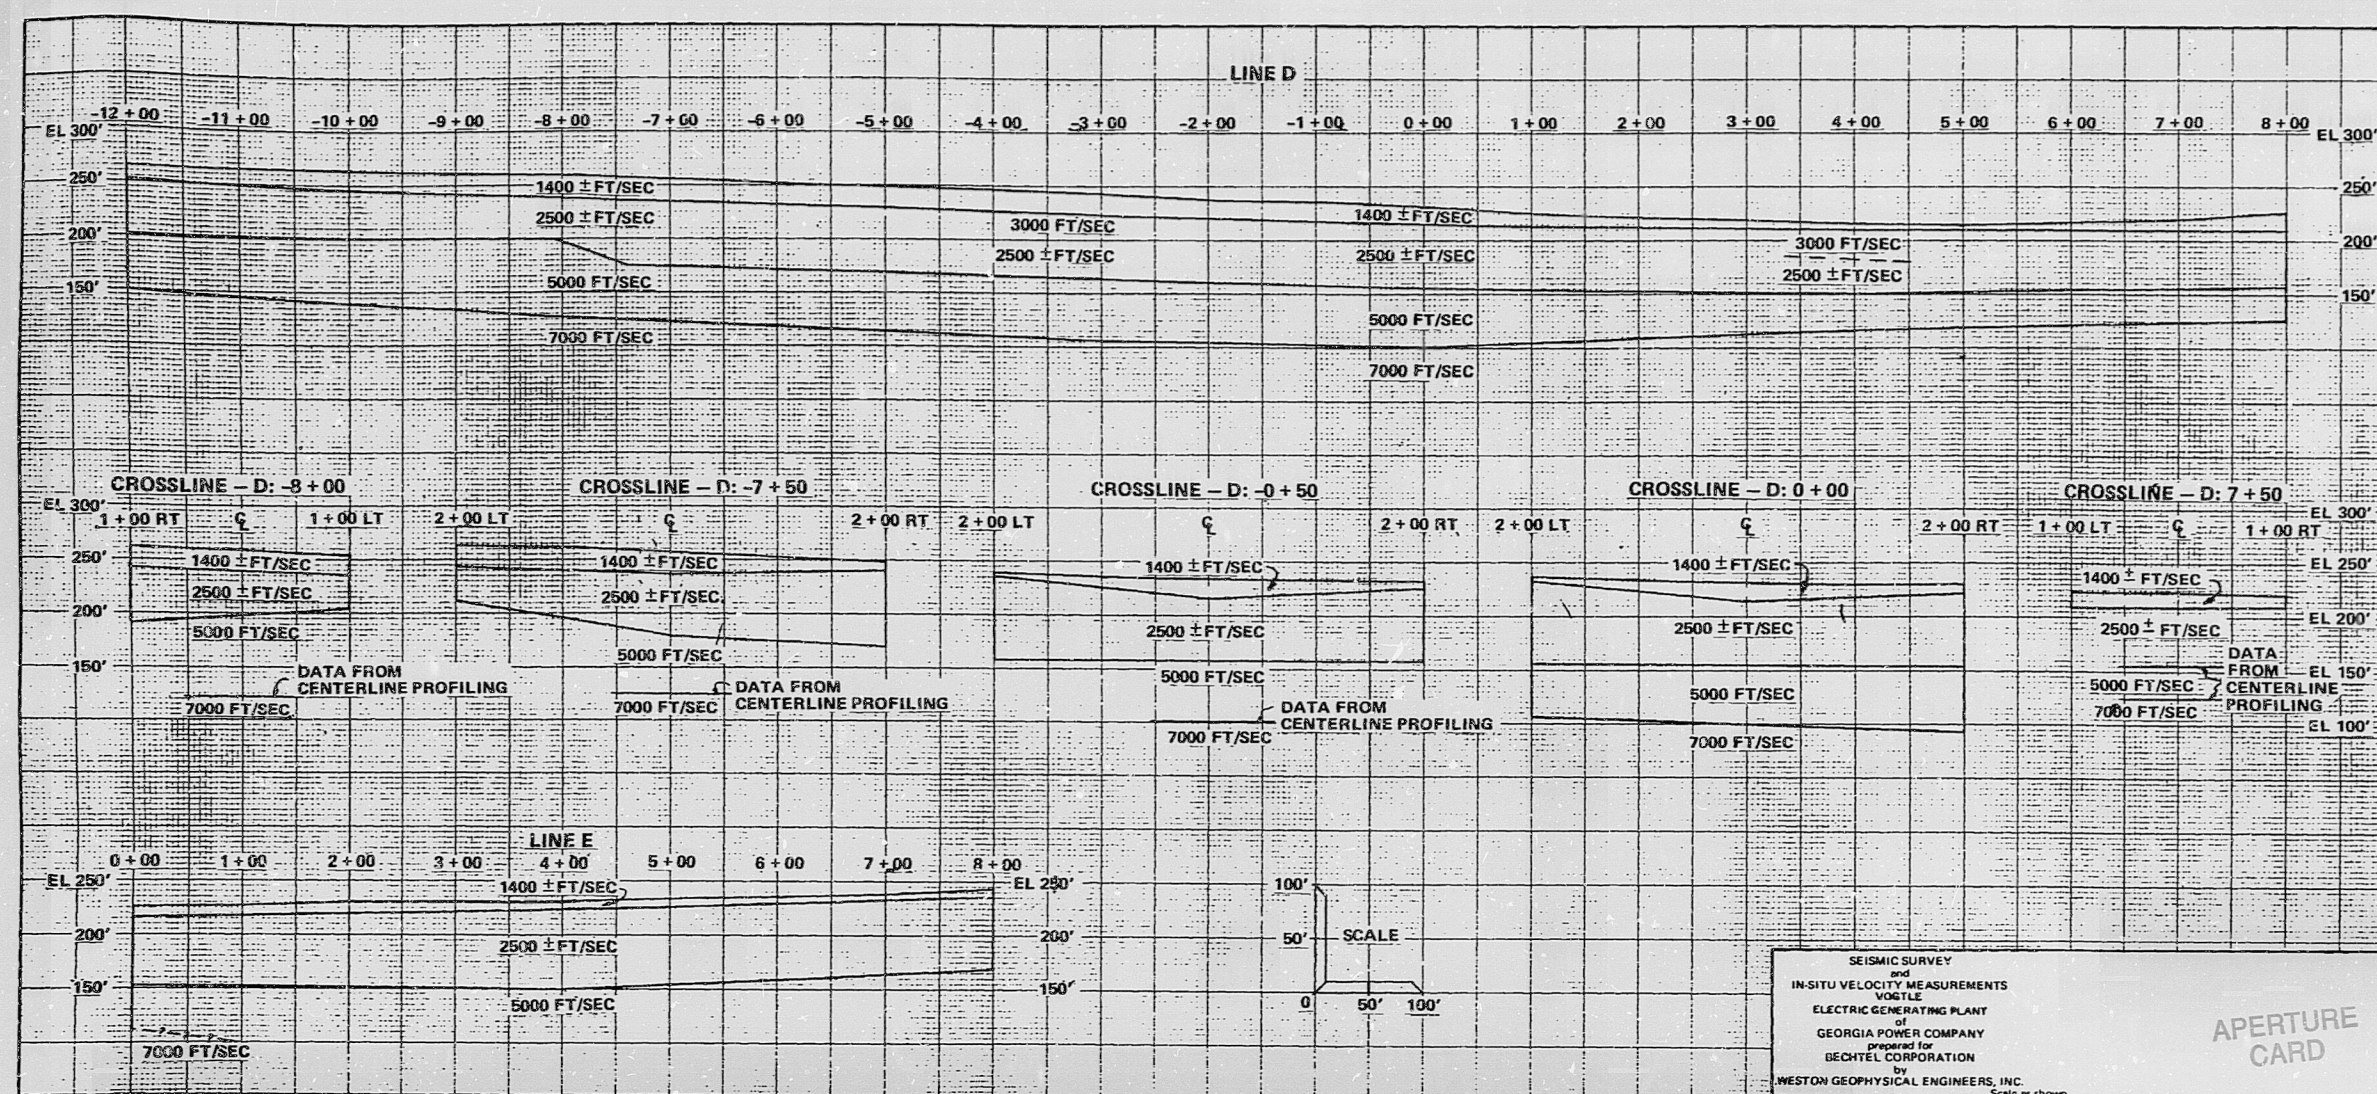 LINE D
-12 + 00 -11 + 00 -10 + 00 -9 + 00 -8 + 00 -7 + 00 -6 + 00 -5 + 00 -4 + 00 -3 + 00 -2 + 00 -1 + 00 0 + 00 1 + 00 2 + 00 3 + 00 4 + 00 5 + 00 6 + 00 7 + 00 8 + 00
EL 300' EL 300'
250' 1400 ± FT/SEC 250'
2500 ± FT/SEC 3000 FT/SEC 1400 ± FT/SEC
200' 3000 FT/SEC 200'
2500 ± FT/SEC 2500 ± FT/SEC 2500 ± FT/SEC
150' 5000 FT/SEC 150'
5000 FT/SEC
7000 FT/SEC
7000 FT/SEC
CROSSLINE – D: -8 + 00
EL 300'
1 + 00 RT ℄ 1 + 00 LT
250' 1400 ± FT/SEC
2500 ± FT/SEC
200'
5000 FT/SEC
150'
DATA FROM
CENTERLINE PROFILING
7000 FT/SEC
CROSSLINE – D: -7 + 50
2 + 00 LT ℄ 2 + 00 RT
1400 ± FT/SEC
2500 ± FT/SEC
5000 FT/SEC
DATA FROM
CENTERLINE PROFILING
7000 FT/SEC
CROSSLINE – D: -0 + 50
2 + 00 LT ℄ 2 + 00 RT
1400 ± FT/SEC
2500 ± FT/SEC
5000 FT/SEC
DATA FROM
CENTERLINE PROFILING
7000 FT/SEC
CROSSLINE – D: 0 + 00
2 + 00 LT ℄ 2 + 00 RT
1400 ± FT/SEC
2500 ± FT/SEC
5000 FT/SEC
7000 FT/SEC
CROSSLINE – D: 7 + 50
EL 300'
1 + 00 LT ℄ 1 + 00 RT
EL 250'
1400 ± FT/SEC
EL 200'
2500 ± FT/SEC
DATA
FROM
CENTERLINE
PROFILING
EL 150'
5000 FT/SEC
7000 FT/SEC
EL 100'
LINE E
0 + 00 1 + 00 2 + 00 3 + 00 4 + 00 5 + 00 6 + 00 7 + 00 8 + 00
EL 250' 1400 ± FT/SEC EL 250'
200' 2500 ± FT/SEC 200'
150' 5000 FT/SEC 150'
?
7000 FT/SEC
100'
50' SCALE
0 50' 100'
SEISMIC SURVEY
and
IN-SITU VELOCITY MEASUREMENTS
VOGTLE
ELECTRIC GENERATING PLANT
of
GEORGIA POWER COMPANY
prepared for
BECHTEL CORPORATION
by
WESTON GEOPHYSICAL ENGINEERS, INC.
Scale as shown
APERTURE
CARD